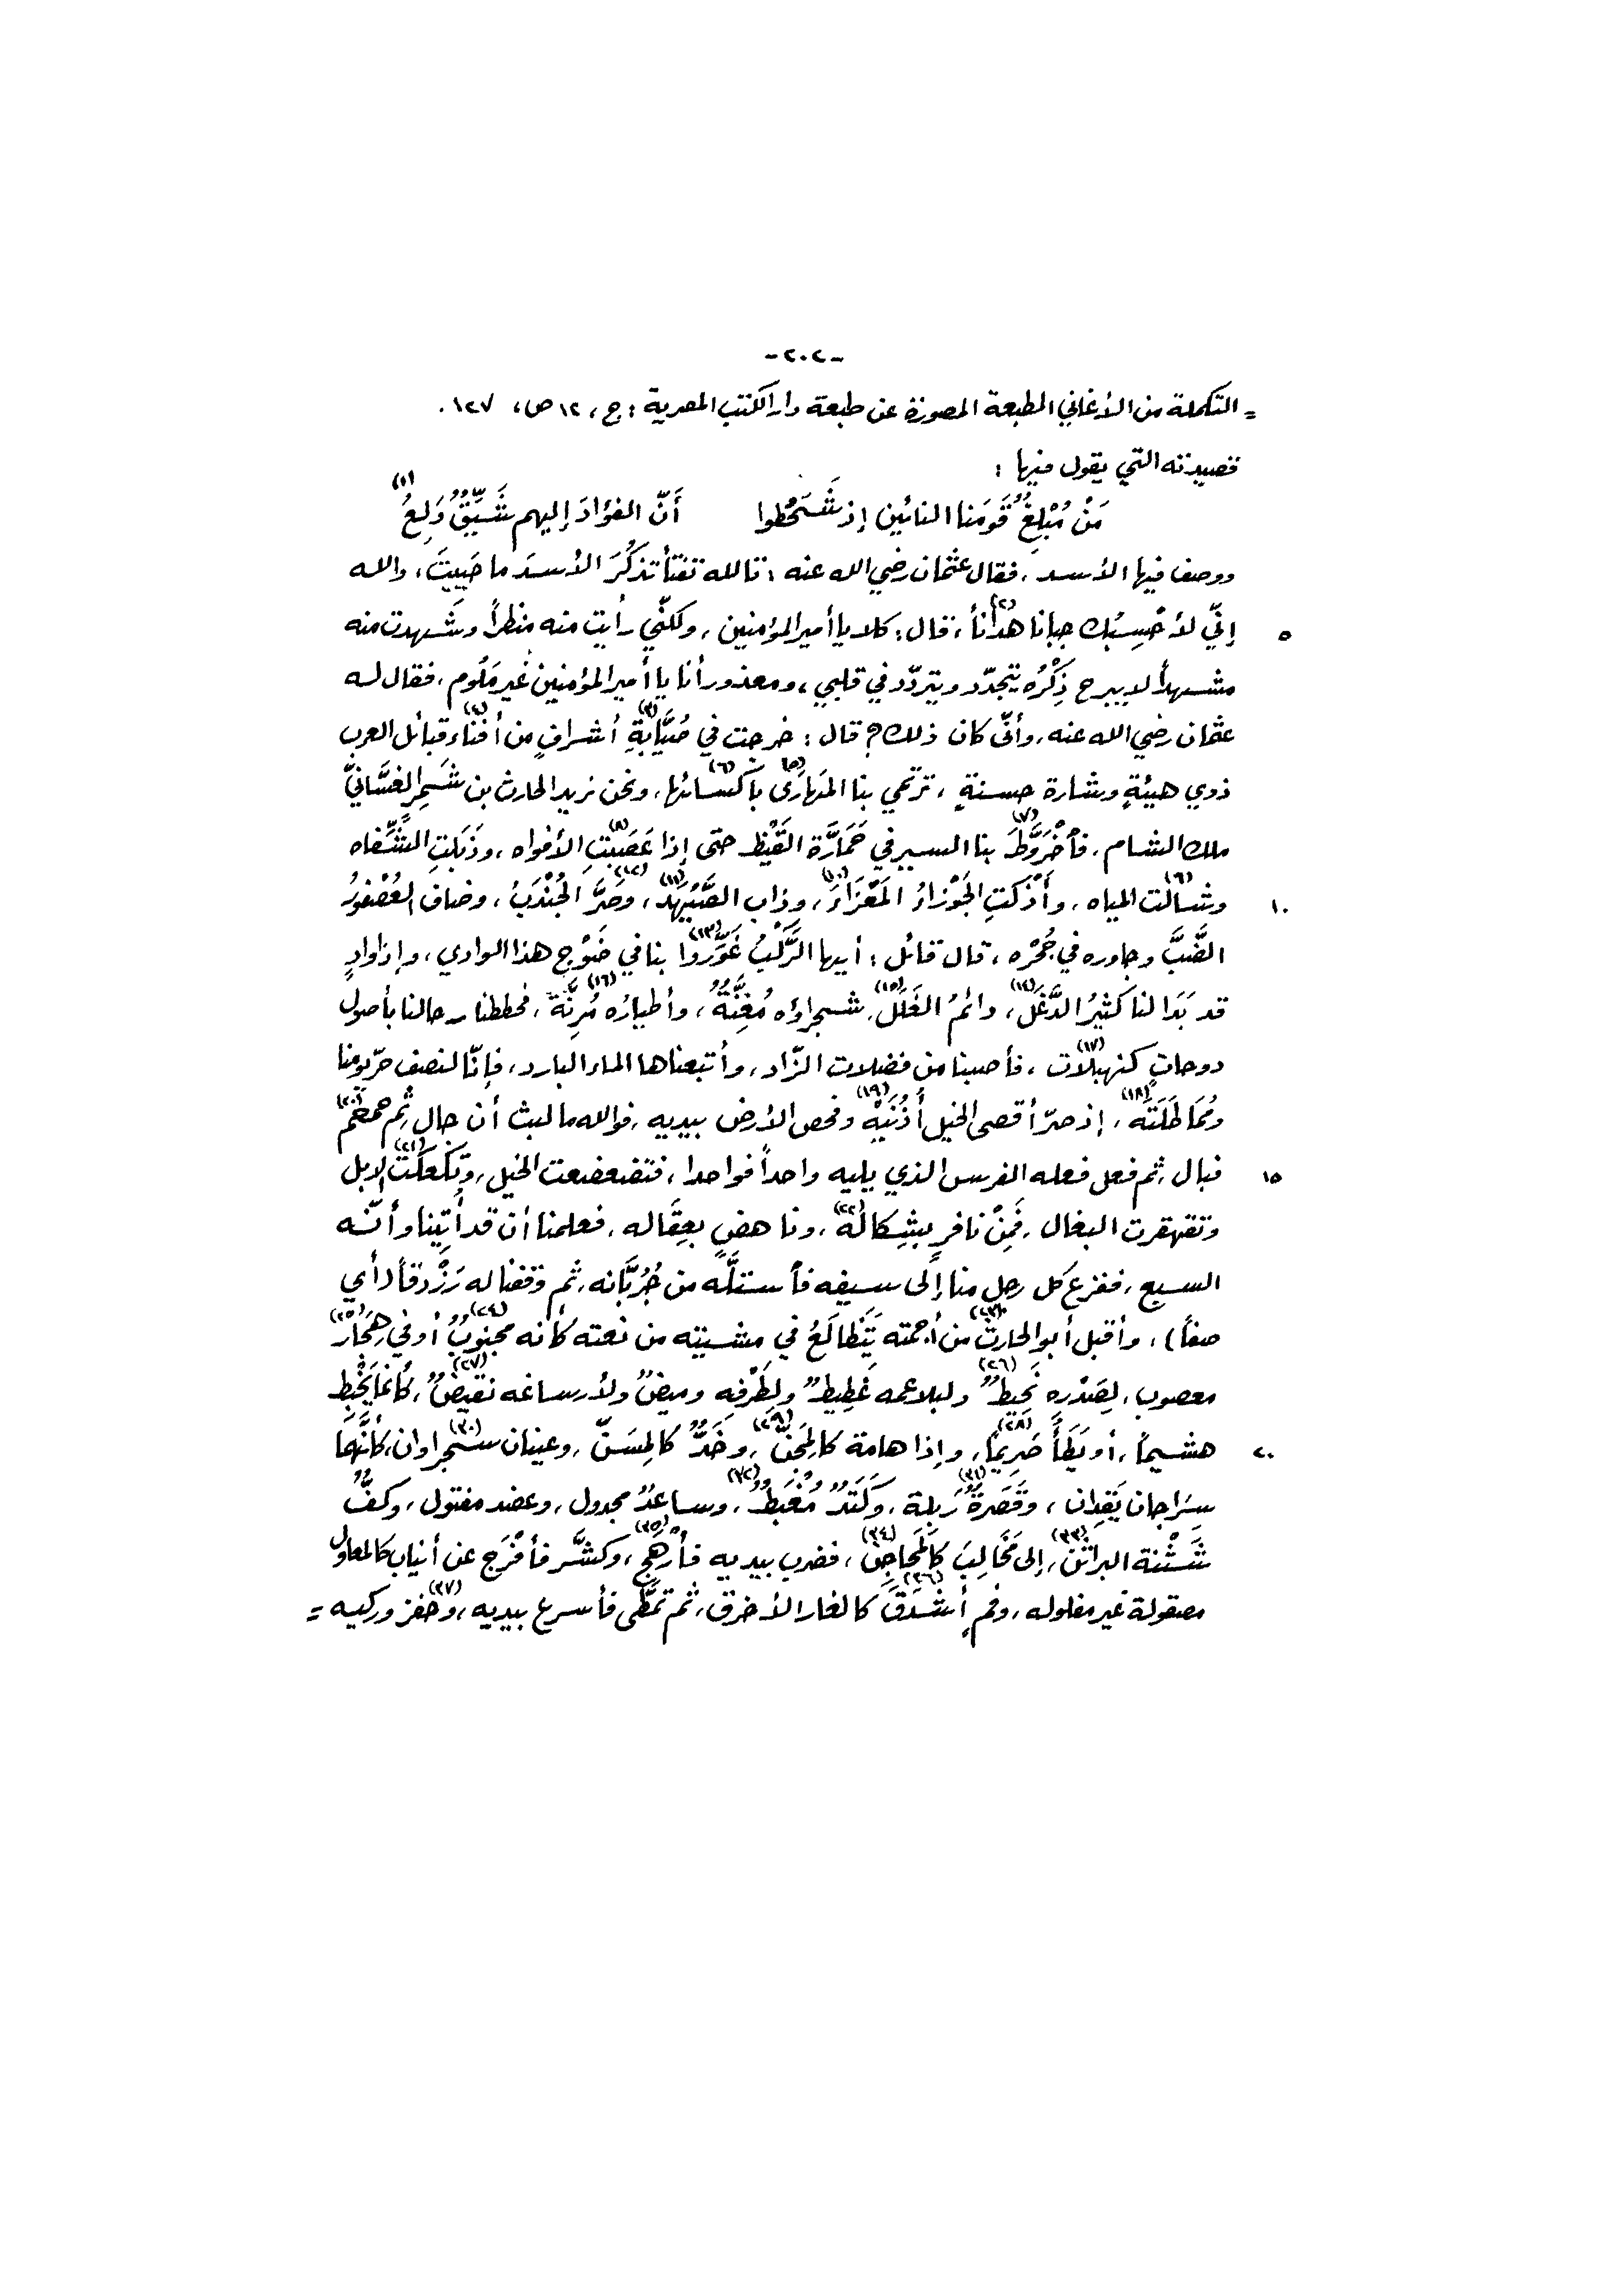 -٢٠٢-
= التكملة من الأغاني المطبعة المصورة عن طبعة دار الكتب المصرية : ج ، ١٢ ص ، ١٢٧ .
قصيدته التي يقول فيها :
مَنْ مُبْلِغٌ قَومَنا النائين إذ شَحَطُوا أَنَّ الفؤادَ إليهم شَيِّقٌ وَلِعُ (١)
ووصف فيها الأسد ، فقال عثمان رضي الله عنه : تالله تفتأ تذكُرَ الأسدَ ما حَيِيتَ ، والله
٥ إنّي لأَحْسِبُك جبانا هدانأ (٢) ، قال : كلا يا أمير المؤمنين ، ولكنّي رأيت منه منظراً وشَهدت منه
مشهداً لا يبرح ذِكْرُه يتجدّد ويتردّد في قلبي ، ومعذور أنا يا أمير المؤمنين غير مَلُوم ، فقال له
عثمان رضي الله عنه ، وأنّى كان ذلك ؟ قال : خرجت في صُيَّابةِ (٣) أشرافٍ من أفناء (٤) قبائل العرب
ذوي هيئةٍ وشارة حسنةٍ ، ترتمي بنا المَهارَى (٥) بأكسائها (٦) ، ونحن نريد الحارث بن شَمِر الغسَّانيّ
ملك الشام ، فأخْرَوَّطَ (٧) بنا السير في حَمَارَّة القَيْظ حتى إذا عَصَبَتِ (٨) الأفواه ، وذَبَلتِ الشِّفاه
١٠ وشالت (٩) المياه ، وأَذْكَتِ الجَوْزاءُ المَعْزَاءَ (١٠) ، وذاب الصَّيْهد (١١) ، وصَرَّ الجُنْدَبُ (١٢) ، وضاف العُصْفورُ
الضَّبَّ وجاوره في جُحْره ، قال قائل : أيها الرَّكْبُ غَوِّروا (١٣) بنا في ضَوْج هذا الوادي ، وإذا وادٍ
قد بَدَا لنا كَثيرُ الدَّغَل (١٤) ، دائمُ الغَلَل (١٥) ، شجراؤه مُغِنَّةٌ ، وأطيارُه مُرِنَّة (١٦) ، فحططنا رحالنا بأصول
دوحاتٍ كنهبلات (١٧) ، فأصبنا من فضلات الزّاد ، وأتبعناها الماء البارد ، فإنّا لنصف حرّ يومنا
ومُمَاطَلَتَه (١٨) ، إذ صرّ أقصى الخيل أُذُنَيْه (١٩) وفحص الأرض بيديه ، فوالله ما لبث أن جال ثم حمحم (٢٠)
١٥ فبال ، ثم فعل فعله الفرس الذي يليه واحداً فواحدا ، فتضعضعت الخيل ، وتكعكت (٢١) الإبل
وتقهقرت البغال ، فَمِنْ نافرٍ بشِكاله (٢٢) ، وناهضٍ بعِقَاله ، فعلمنا أن قد أُتِينا وأنّه
السبع ، ففزع كل رجل منا إلى سيفه فأستلَّه من جُرُبَّانه ، ثم وقفنا له رَزْدَقاً ( أي
صفاً ) ، وأقبل أبو الحارث (٢٣) من أجمته يَتَظالَعُ في مشيته من نعته كأنه مجنوبٌ (٢٤) أو في هِجَار (٢٥)
معصوب ، لِصَدْره نَحِيطٌ (٢٦) ولبلاعمه غَطِيطٌ ولِطَرْفه وميضٌ ولأرساغه نقيضٌ (٢٧) ، كأنما يَخْبِط
٢٠ هشيماً ، أو يَطَأُ صَرِيماً (٢٨) ، وإذا هامة كالمِجَنّ (٢٩) ، وخَدٌّ كالمِسَنّ ، وعينان سجراوان (٣٠) ، كأنَّهما
سِرَاجان يَقِدان ، وقَصَرةٌ (٣١) رَبِلة ، وكَتَدٌ مُغْبَطٌ (٣٢) ، وساعدٌ مجدول ، وعضد مفتول ، وكفٌّ
شَثْنة البراثن (٣٣) ، إلى مَخَالِبَ كالمَحاجن (٣٤) ، فضرب بيديه فأرْهَج (٣٥) ، وكشَّر فأفْرَج عن أنياب كالمعاول
مصقولة غير مفلوله ، وفمٍ أشْدَقَ (٣٦) كالغار الأخرق ، ثم تمَطَّى فأسرع بيديه ، وحفز وركيه (٣٧) =